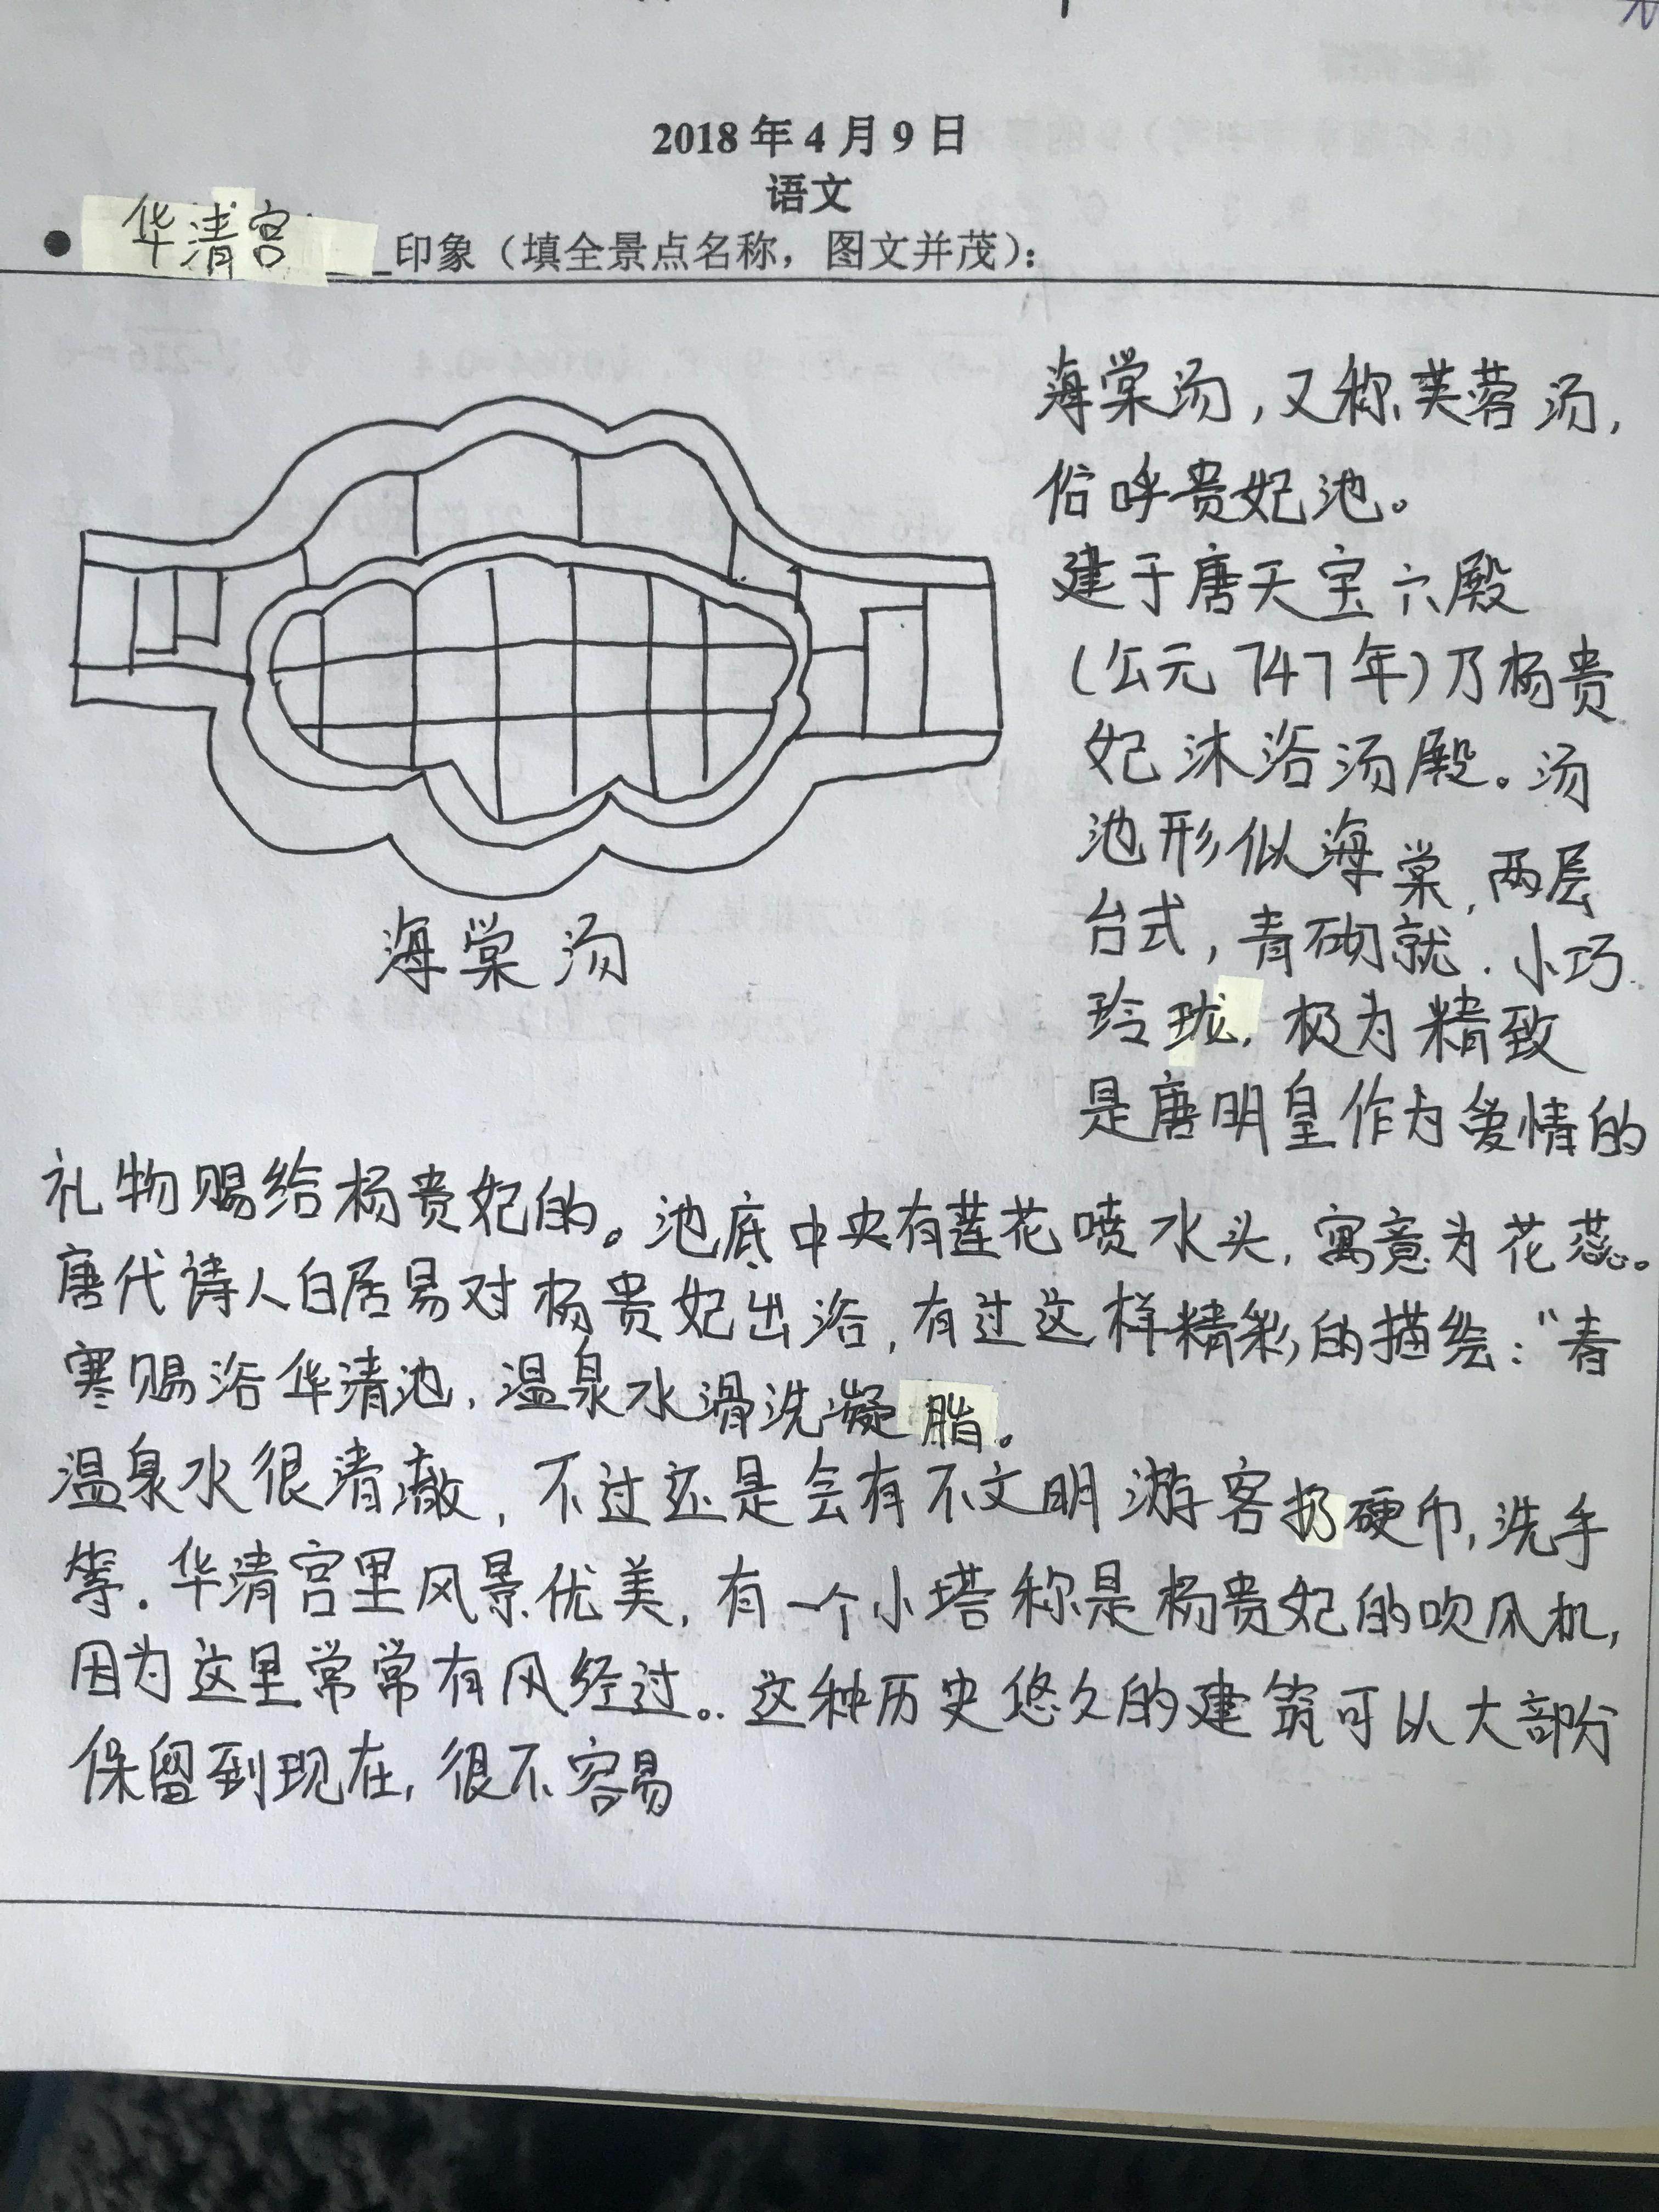 2018年4月9日
语文
● 华清宫 印象（填全景点名称，图文并茂）：
海棠汤，又称芙蓉汤，
俗呼贵妃池。
建于唐天宝六殿
（公元747年）乃杨贵
妃沐浴汤殿。汤
池形似海棠，两层
台式，青砌就．小巧
玲珑，极为精致
是唐明皇作为爱情的
海棠汤
礼物赐给杨贵妃的。池底中央有莲花喷水头，寓意为花蕊。
唐代诗人白居易对杨贵妃出浴，有过这样精彩的描绘：“春
寒赐浴华清池，温泉水滑洗凝脂。
温泉水很清澈，不过还是会有不文明游客扔硬币，洗手
等．华清宫里风景优美，有一个小塔称是杨贵妃的吹风机，
因为这里常常有风经过。．这种历史悠久的建筑可以大部份
保留到现在，很不容易